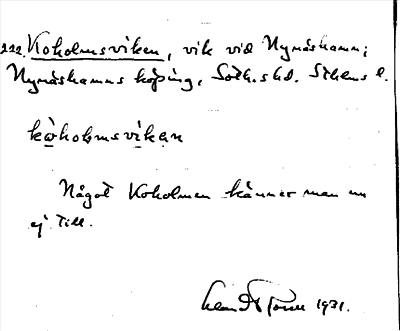 222. Koholmsviken, vik vid Nynäshamn;
Nynäshamns köping, Soth. skd. Sthms l.
kωholmsvikan
Något Koholmen känner man nu
ej till.
1931.